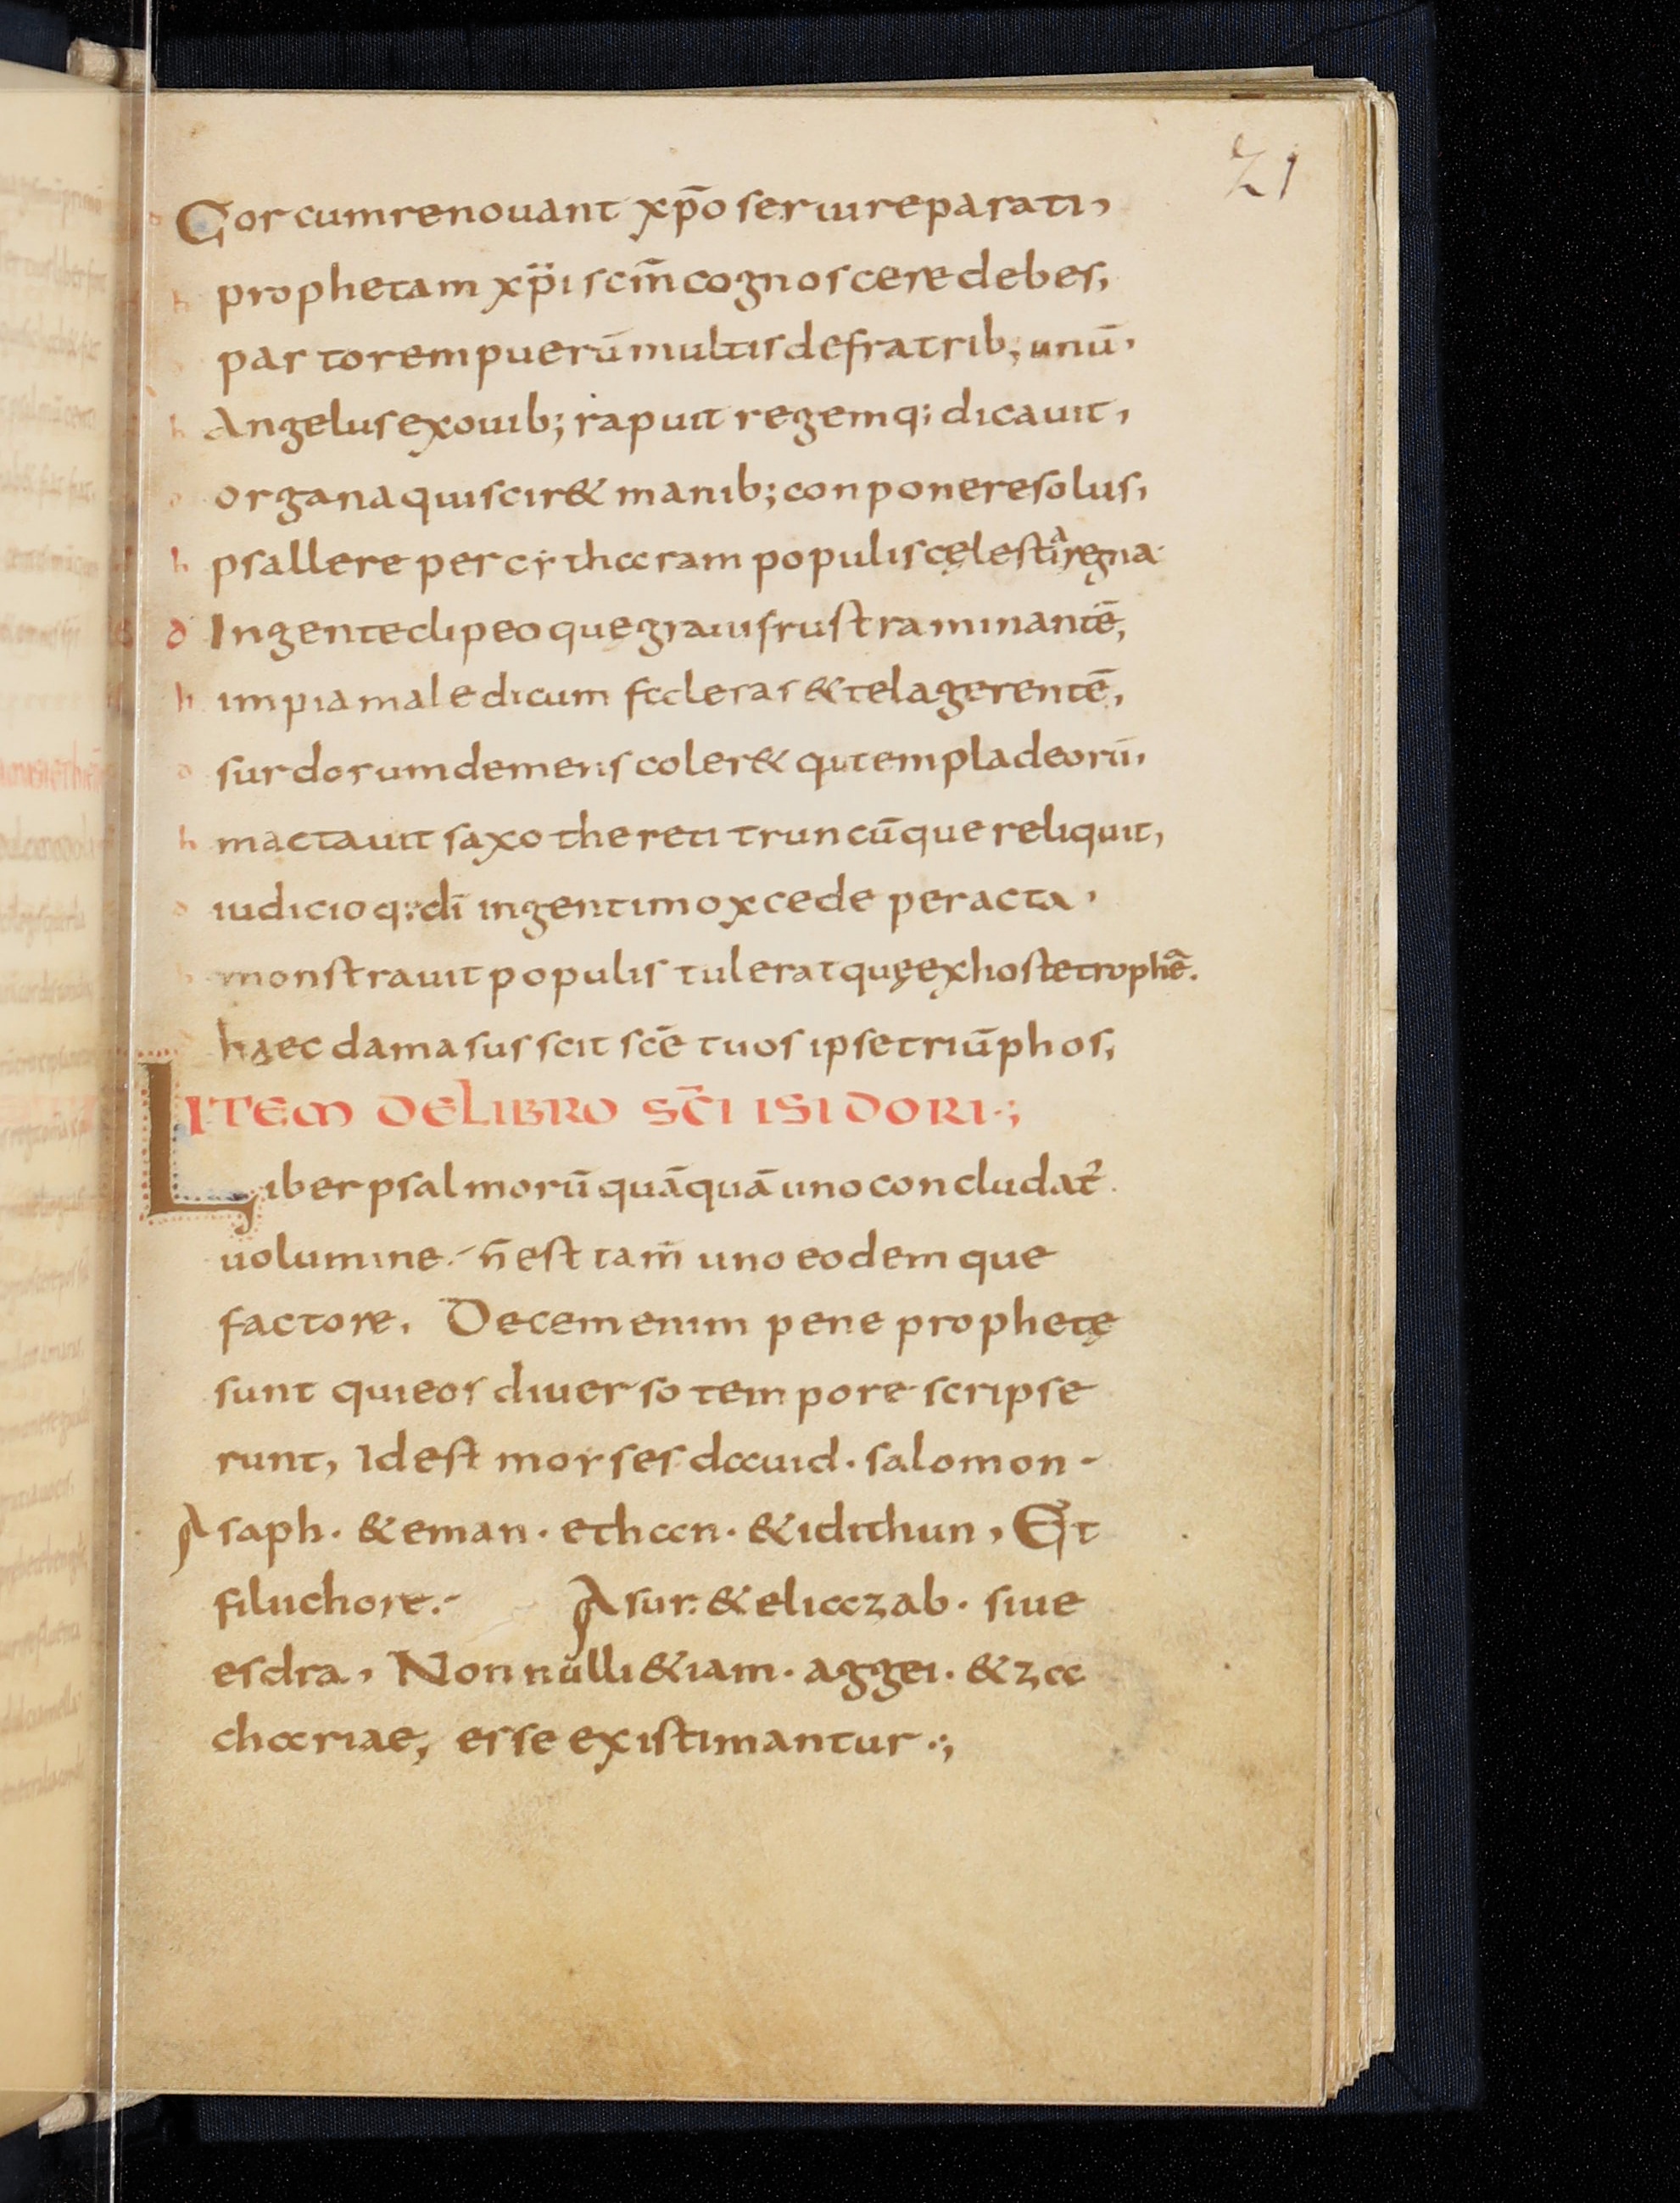 21
Cor cum renouant xp̄o serui reparati,
h prophetam xp̄i scm̄ cognoscere debes,
pastorem puerū multis de fratrib; unū,
h Angelus ex ouib; rapuit regemq; dicauit,
o organa qui sciret manib; conponere solus,
h psallere per cytharam populis cęlestia regna
d Ingente clipeo quę grauis frustra minantē,
h impia maledicum sceleras & tela gerentē,
o surdorum demens coler& qui templa deorū,
h mactauit saxo thereti truncūque reliquit,
o iudicioq; dī ingenti mox cede peracta,
monstrauit populis tulerat quę ex hoste trophea.
haec damasus scit scē tuos ipse triūphos,
ITEM DE LIBRO SC̄I ISIDORI.;
Liber psalmorū quāquā uno concludat᷑
uolumine. n̄ est tam̄ uno eodemque
factore. Decem enim pene prophetę
sunt qui eos diuerso tempore scripse
runt, Idest moyses dauid. salomon.
Asaph. & eman. ethan. & idithun, Et
filii chore. Asur. & eliazab. siue
esdra, Non nulli & iam. aggei. & za
chariae, esse existimantur.;